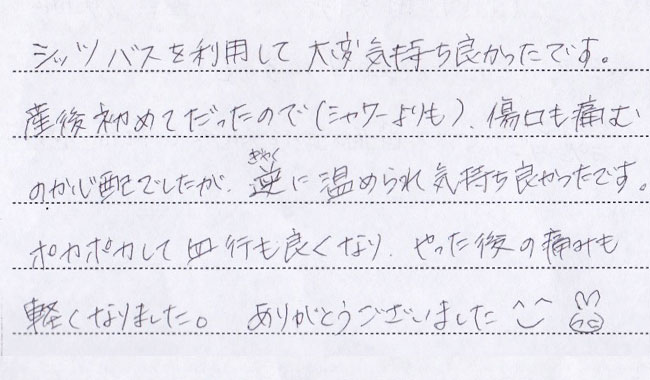 シッツバスを利用して大変気持ち良かったです。
産後初めてだったので(シャワーよりも)、傷口も痛む
のか心配でしたが、逆(ぎゃく)に温められ気持ち良かったです。
ポカポカして血行も良くなり、やった後の痛みも
軽くなりました。 ありがとうございました